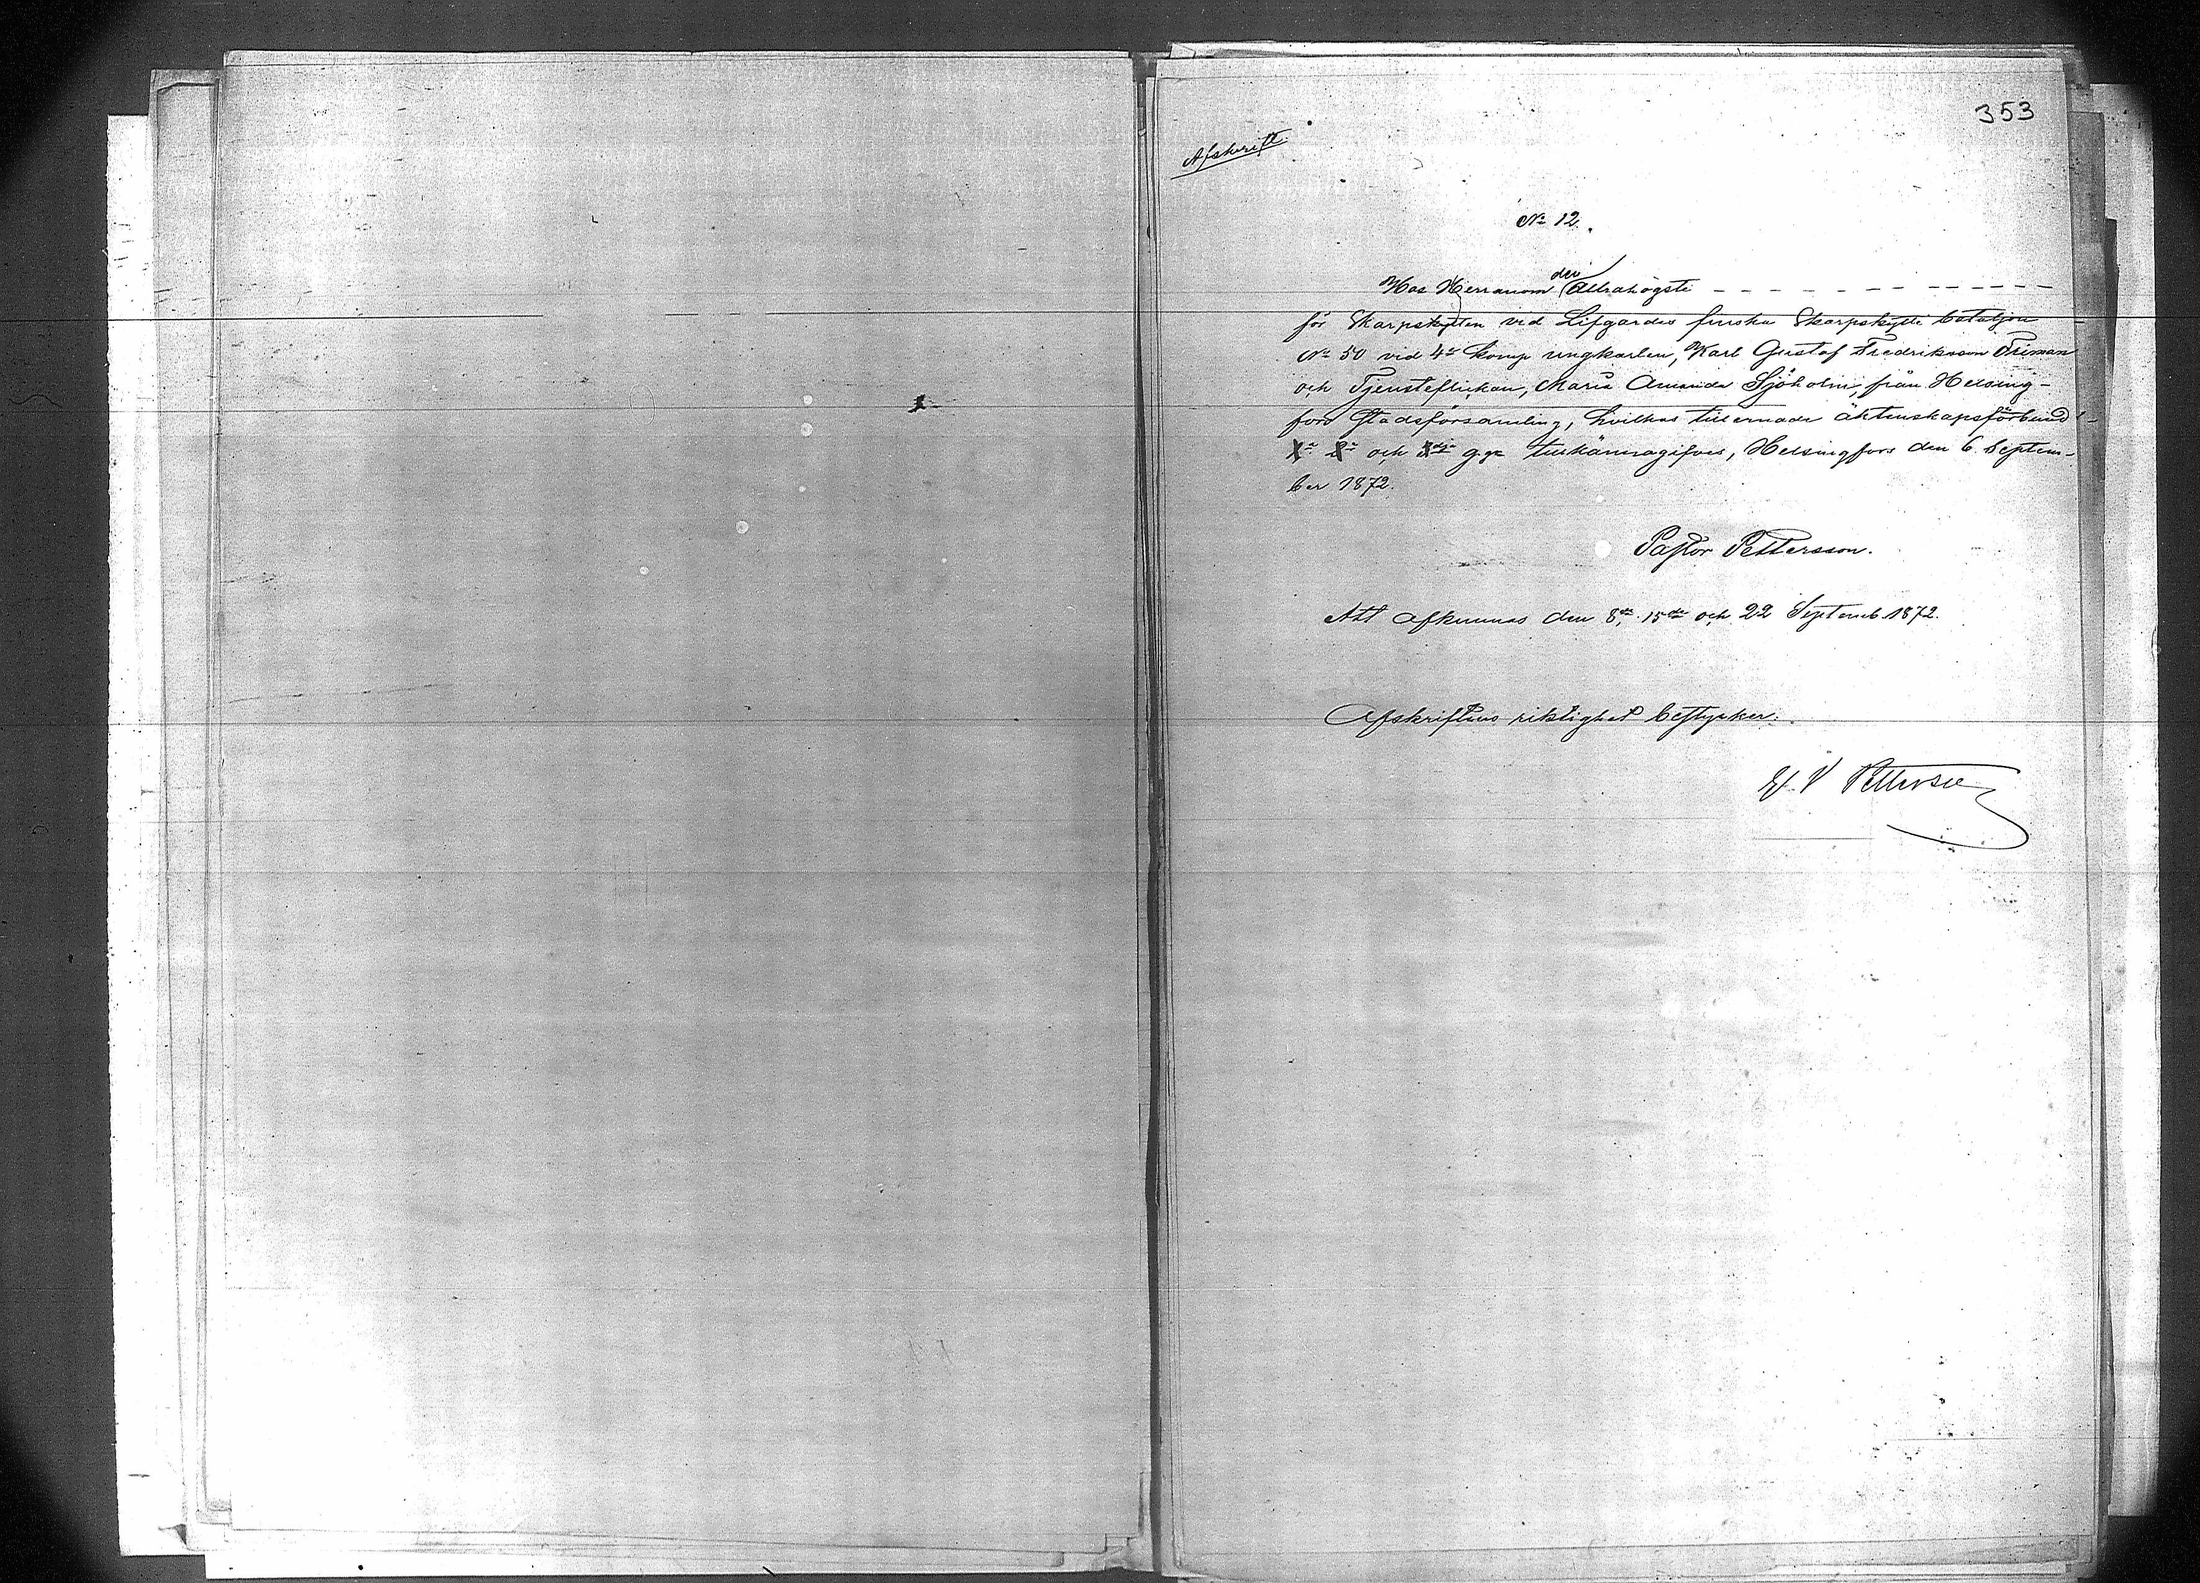 353
Afskrift
N: 12.
Hos Herranom den Allrahögste
för Skarpskytten vid Lifgardes finska Skarpskytte bataljon
N: 50 vid 4:de Komp ungkarlen, Karl Gustaf Fredriksson Friman
och Tjensteflickan, Maria Amanda Sjöholm, från Helsing-
fors Stadsförsamling, hvilkas tillernade äktenskapsförbund
och g:gn tillkännagifves, Helsingfors den 6 Septem-
ber 1872.
Pastor Pettersson.
Att afkunnas den 8:de 15:de och 22 Septemb. 1872.
Afskriftens riktighet bestyrker:
V Pettersso